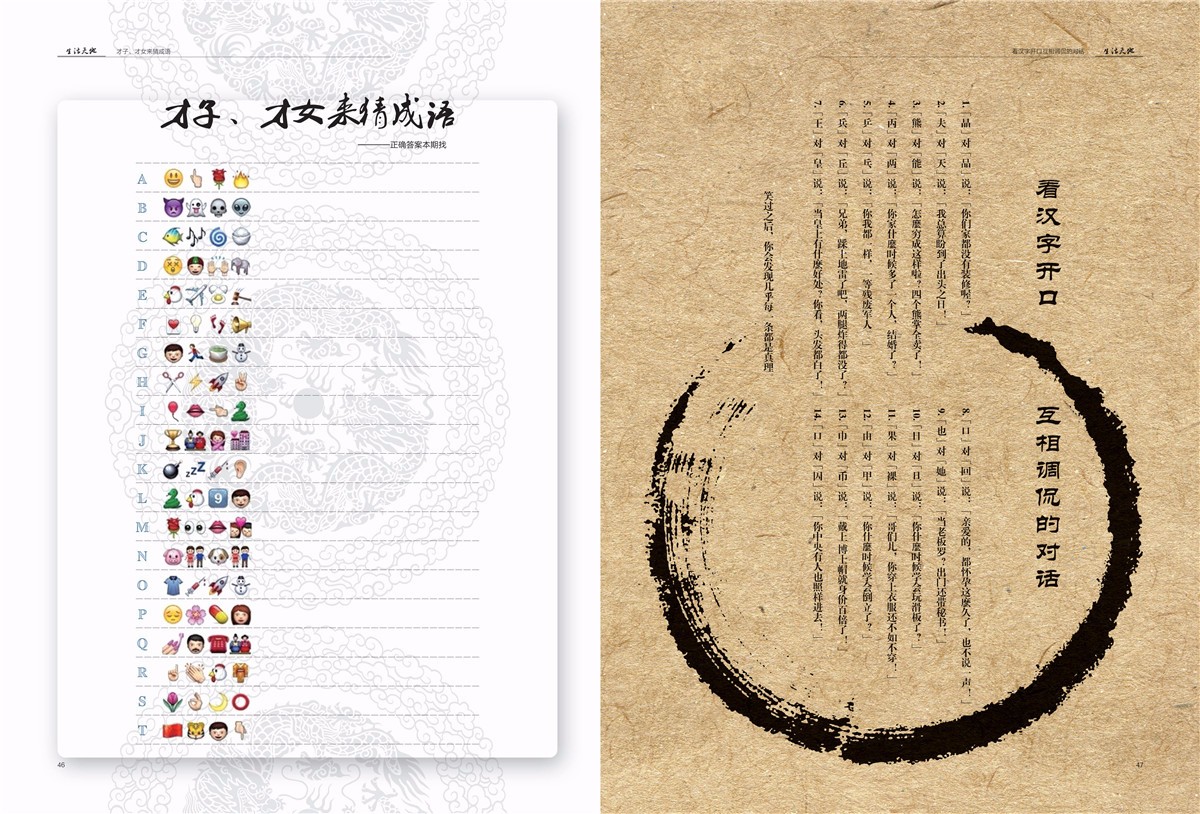 生活天地
才子、才女来猜成语
才子、才女来猜成语
———正确答案本期找
A
B
C
D
E
F
G
H
I
J
K
L
M
N
O
P
Q
R
S
T
46
看汉字开口互相调侃的对话
生活天地
看汉字开口 互相调侃的对话
1.「品」对「品」说：「你们家都没有装修喔？」
2.「夫」对「天」说：「我总算盼到了出头之日！」
3.「熊」对「能」说：「怎麼穷成这样啦？四个熊掌全卖了！」
4.「丙」对「两」说：「你家什麼时候多了一个人，结婚了？」
5.「乒」对「乓」说：「你我都一样，一等残废军人」
6.「兵」对「丘」说：「兄弟，踩上地雷了吧，两腿炸得都没了？」
7.「王」对「皇」说：「当皇上有什麼好处？你看，头发都白了！」
笑过之后，你会发现几乎每一条都是真理
8.「口」对「回」说：「亲爱的，都怀孕这麼久了，也不说一声！」
9.「也」对「她」说：「当老板罗？出门还带秘书！」
10.「日」对「旦」说：「你什麼时候学会玩滑板了？」
11.「果」对「裸」说：「哥们儿，你穿上衣服还不如不穿！」
12.「由」对「甲」说：「你什麼时候学会倒立了？」
13.「巾」对「币」说：「戴上博士帽就身价百倍了！」
14.「口」对「囚」说：「你中央有人也照样进去！」
47